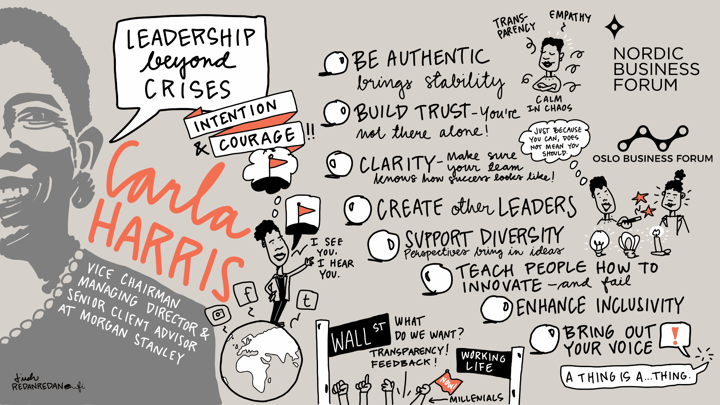 LEADERSHIP
beyond
CRISES
INTENTION
& COURAGE!!
Carla
HARRIS
VICE CHAIRMAN
MANAGING DIRECTOR &
SENIOR CLIENT ADVISOR
AT MORGAN STANLEY
I SEE
YOU.
I HEAR
YOU.
f
t
REDANREDAN
BE AUTHENTIC
brings stability
BUILD TRUST - you're
not there alone!
CLARITY - make sure
your team
knows how success looks like!
CREATE other LEADERS
SUPPORT DIVERSITY
Perspectives bring in ideas
TEACH PEOPLE HOW TO
INNOVATE - and fail
ENHANCE INCLUSIVITY
BRING OUT
YOUR VOICE
!
A THING IS A...THING.
TRANS-
PARENCY
EMPATHY
CALM
IN CHAOS
JUST BECAUSE
YOU CAN, DOES
NOT MEAN YOU
SHOULD.
NORDIC
BUSINESS
FORUM
OSLO BUSINESS FORUM
WALL ST
WHAT
DO WE WANT?
TRANSPARENCY!
FEEDBACK!
WORKING
LIFE
NOW!
MILLENIALS